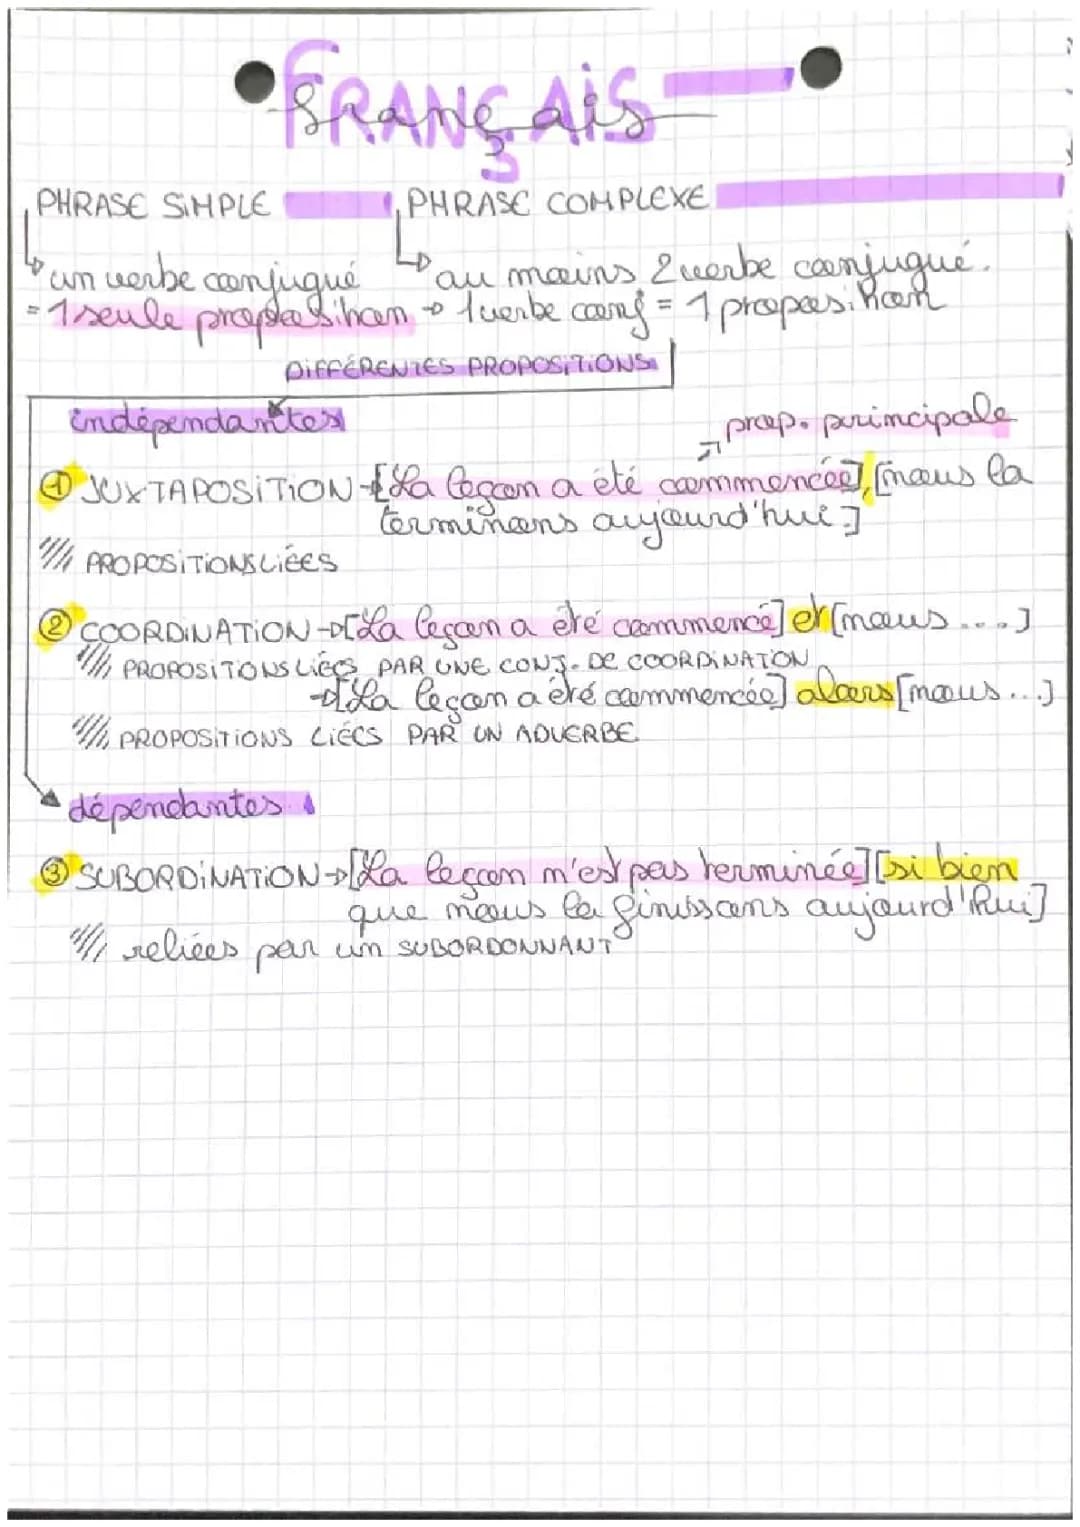 FRANÇAIS
français
PHRASE SIMPLE
PHRASE COMPLEXE
un verbe conjugué
au moins 2 verbe conjugué.
= 1 seule proposition → 1 verbe conj = 1 proposition
DIFFÉRENTES PROPOSITIONS
indépendantes
prop. principale
① JUXTAPOSITION → [La leçon a été commencée], [nous la
terminons aujourd'hui.]
PROPOSITIONS LIÉES
② COORDINATION → [La leçon a été commencé] et [nous ....]
PROPOSITIONS LIÉES PAR UNE CONJ. DE COORDINATION
→ [La leçon a été commencée] alors [nous ...]
PROPOSITIONS LIÉES PAR UN ADVERBE
dépendantes
③ SUBORDINATION → [La leçon n'est pas terminée] [si bien
que nous la finissons aujourd'hui]
reliées par un SUBORDONNANT